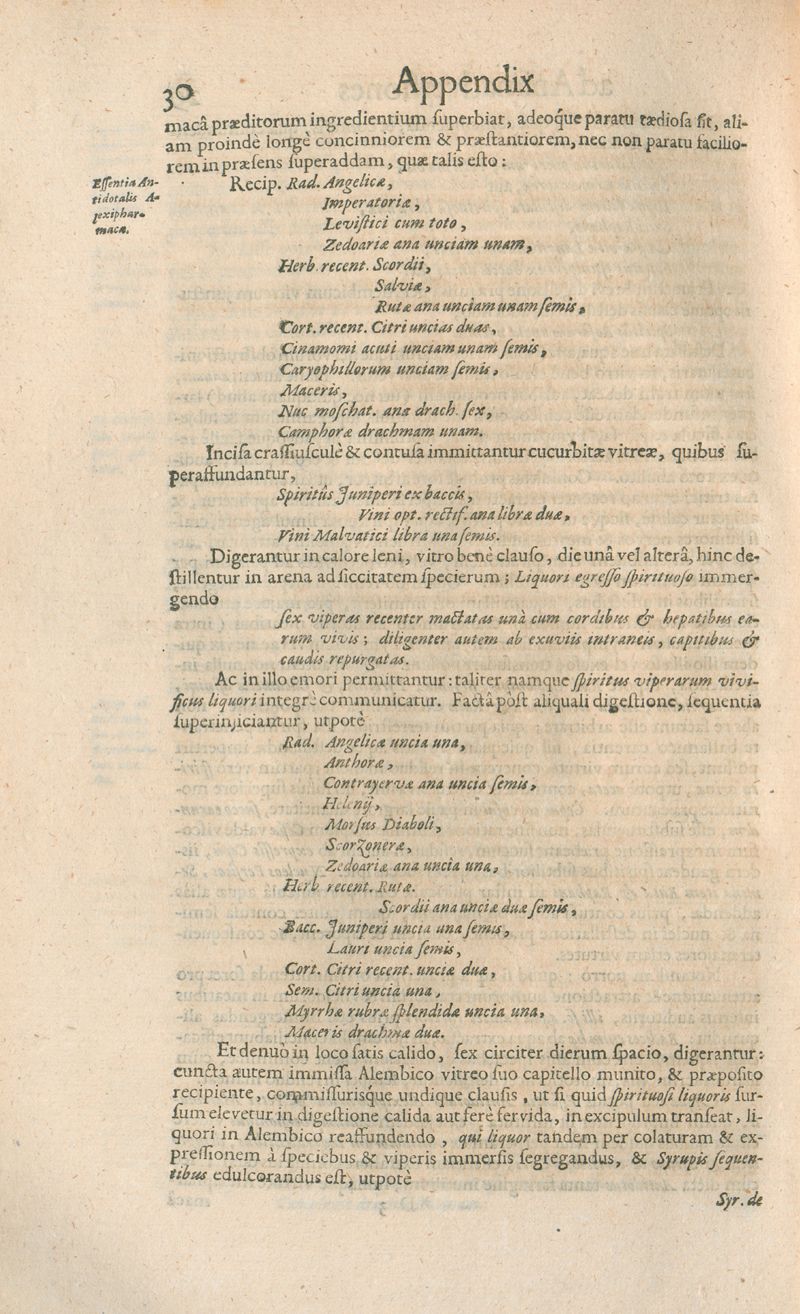 30
Appendix
macâ præditorum ingredientium ſuperbiat, adeoque paratu tædioſa ſit, ali-
am proindè longè concinniorem & præſtantiorem, nec non paratu facilio-
rem in præſens ſuperaddam, quæ talis eſto:
Eſſentia An-
tidotalis A-
lexiphar-
maca.
Recip. Rad. Angelicæ,
Imperatoriæ,
Leviſtici cum toto,
Zedoariæ ana unciam unam,
Herb. recent. Scordii,
Salviæ,
Rutæ ana unciam unam ſemis,
Cort. recent. Citri uncias duas,
Cinamomi acuti unciam unam ſemis,
Caryophillorum unciam ſemis,
Maceris,
Nuc moſchat. ana drach. ſex,
Camphoræ drachmam unam.
Inciſa craſſiuſculè & contuſa immittantur cucurbitæ vitreæ, quibus ſu-
peraffundantur,
Spiritûs Juniperi ex baccis,
Vini opt. rectif. ana libræ duæ,
Vini Malvatici libra una ſemis.
Digerantur in calore leni, vitro benè clauſo, die unâ vel alterâ, hinc de-
ſtillentur in arena ad ſiccitatem ſpecierum; Liquori egreſſo ſpirituoſo immer-
gendo
ſex viperas recenter mactatas unà cum cordibus & hepatibus ea-
rum vivis; diligenter autem ab exuviis intraneis, capitibus &
caudis repurgatas.
Ac in illo emori permittantur: taliter namque ſpiritus viperarum vivi-
ficus liquori integrè communicatur. Factâ pòſt aliquali digeſtione, ſequentia
ſuperinjiciantur, utpotè
Rad. Angelicæ uncia una,
Anthoræ,
Contrayervæ ana uncia ſemis,
Helenij,
Morſus Diaboli,
Scorzoneræ,
Zedoariæ ana uncia una,
Herb. recent. Rutæ.
Scordii ana unciæ duæ ſemis,
Bacc. Juniperi uncia una ſemis,
Lauri uncia ſemis,
Cort. Citri recent. unciæ duæ,
Sem. Citri uncia una,
Myrrhæ rubræ ſplendidæ uncia una,
Maceris drachmæ duæ.
Et denuò in loco ſatis calido, ſex circiter dierum ſpacio, digerantur:
cuncta autem immiſſa Alembico vitreo ſuo capitello munito, & præpoſito
recipiente, commiſſurisque undique clauſis, ut ſi quid ſpirituoſi liquoris ſur-
ſum elevetur in digeſtione calida aut ferè fervida, in excipulum tranſeat, li-
quori in Alembico reaffundendo, qui liquor tandem per colaturam & ex-
preſſionem à ſpeciebus & viperis immerſis ſegregandus, & Syrupis ſequen-
tibus edulcorandus eſt, utpotè
Syr. de